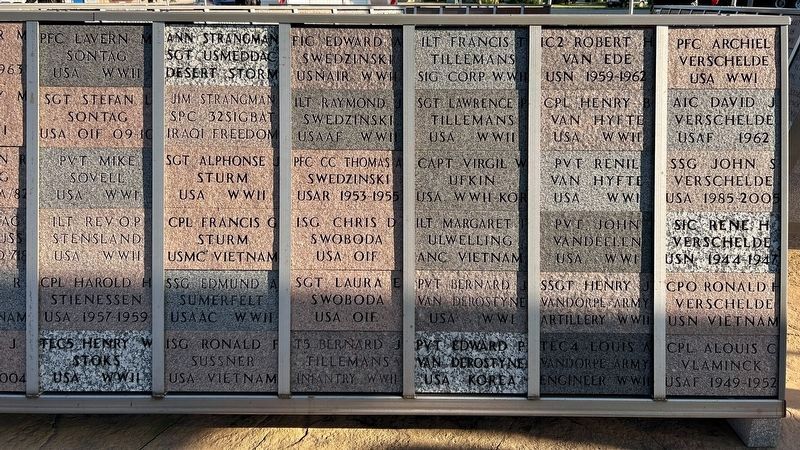 M
1963
J
2004
PFC LAVERN M
SONTAG
USA WWII
SGT STEFAN L
SONTAG
USA OIF 09-10
PVT MIKE
SOVELL
USA WWI
1LT REV O.P.
STENSLAND
USA WWII
CPL HAROLD H
STIENESSEN
USA 1957-1959
TEC5 HENRY W
STOKS
USA WWII
ANN STRANGMAN
SGT USMEDDAC
DESERT STORM
JIM STRANGMAN
SPC 32SIGBAT
IRAQI FREEDOM
SGT ALPHONSE J
STURM
USA WWII
CPL FRANCIS G
STURM
USMC VIETNAM
SSG EDMUND A
SUMERFELT
USAAC WWII
1SG RONALD F
SUSSNER
USA VIETNAM
F1C EDWARD A
SWEDZINSKI
USNAIR WWII
1LT RAYMOND J
SWEDZINSKI
USAAF WWII
PFC CC THOMAS A
SWEDZINSKI
USAR 1953-1955
1SG CHRIS D
SWOBODA
USA OIF
SGT LAURA E
SWOBODA
USA OIF
T5 BERNARD J
TILLEMANS
INFANTRY WWII
1LT FRANCIS T
TILLEMANS
SIG CORP WWII
SGT LAWRENCE P
TILLEMANS
USA WWII
CAPT VIRGIL W
UFKIN
USA WWII-KOR
1LT MARGARET
ULWELLING
ANC VIETNAM
PVT BERNARD J
VAN DEROSTYNE
USA WWI
PVT EDWARD P
VAN DEROSTYNE
USA KOREA
IC2 ROBERT H
VAN EDE
USN 1959-1962
CPL HENRY B
VAN HYFTE
USA WWII
PVT RENIL
VAN HYFTE
USA WWI
PVT JOHN
VANDEELEN
USA WWI
SSGT HENRY J
VANDORPE ARMY
ARTILLERY WWII
TEC 4 LOUIS A
VANDORPE ARMY
ENGINEER WWII
PFC ARCHIEL
VERSCHELDE
USA WWI
A1C DAVID J
VERSCHELDE
USAF 1962
SSG JOHN S
VERSCHELDE
USA 1985-2005
S1C RENE H
VERSCHELDE
USN 1944-1947
CPO RONALD H
VERSCHELDE
USN VIETNAM
CPL ALOUIS C
VLAMINCK
USAF 1949-1952